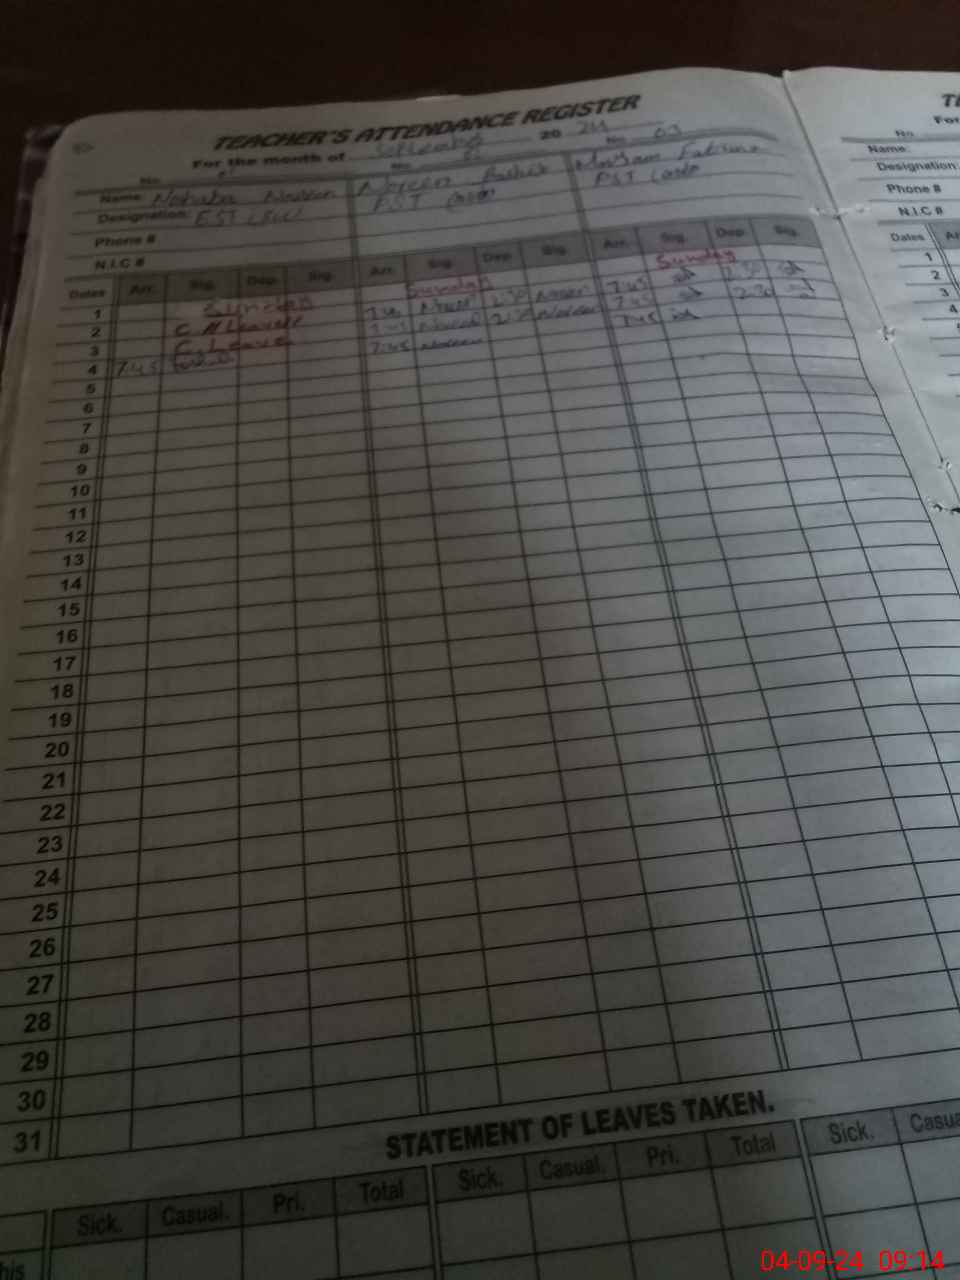 TEACHER'S ATTENDANCE REGISTER
For the month of September 2024
No. 01 No. 02 No. 03
Name: Noreen Maryam Fatima
Designation: EST PST PST
Phone #
N.I.C #
Dates Arr. Sig. Dep. Sig. Arr. Sig. Dep. Sig. Arr. Sig. Dep. Sig.
1 Sunday Sunday Sunday
2 C Leave 7:45 Noreen 2:30 Noreen 7:45 2:30
3 C. Leave 7:45 Noreen 2:30 Noreen 7:45 2:30
4 7:45 7:45 Noreen 7:45
5
6
7
8
9
10
11
12
13
14
15
16
17
18
19
20
21
22
23
24
25
26
27
28
29
30
31
STATEMENT OF LEAVES TAKEN.
Sick. Casual. Pri. Total Sick. Casual. Pri. Total Sick.
No
Name:
Designation:
Phone #
N.I.C #
Dates
1
2
3
4
04-09-24 09:14